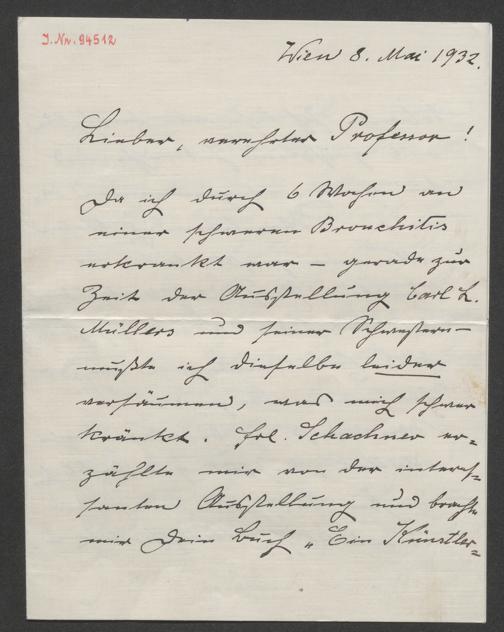 J.Nr. 94512
Wien 8. Mai 1932.
Lieber, verehrter Professor!
Da ich durch 6 Wochen an
einer schweren Bronchitis
erkrankt war – gerade zur
Zeit der Ausstellung Carl L.
Müllers und seiner Schwestern –
mußte ich dieselbe leider
versäumen, was mich schwer
kränkt. Frl. Schachner er=
zählte mir von der interes=
santen Ausstellung und brachte
mir Dein Buch „Ein Künstler=